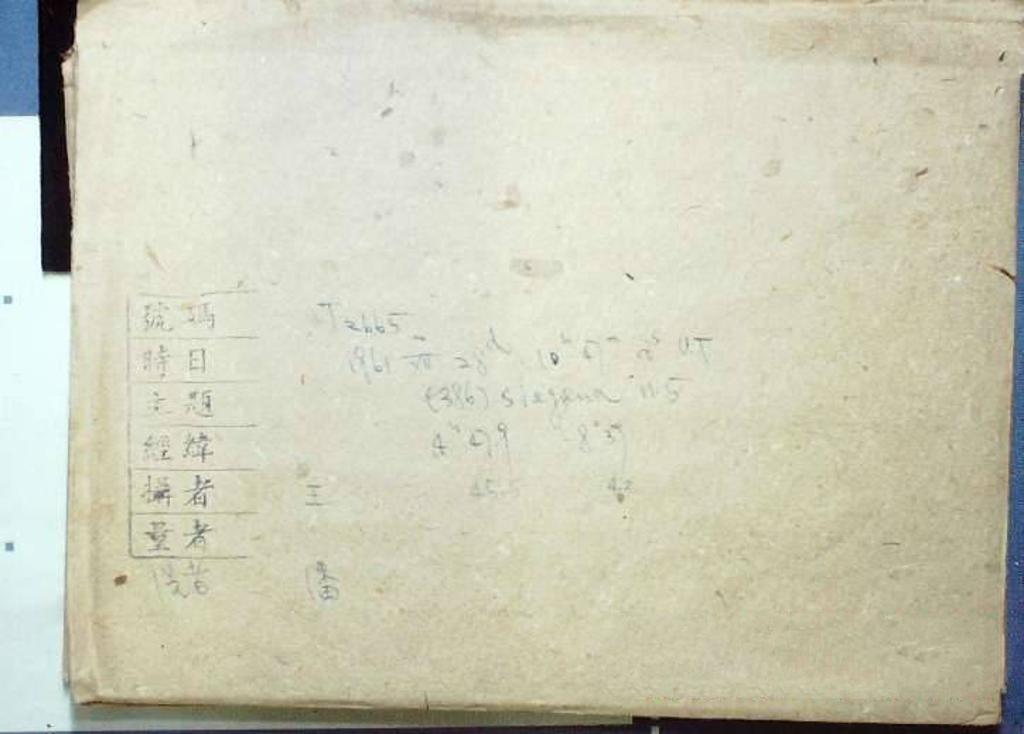 號碼 T2665
時日 1961 VII 28d 10h 47m 0s U.T
主題 (386) Siegena 11.5
經緯 4h 47.9 8°37
攝者 王 45.5 42
量者
洗者 潘